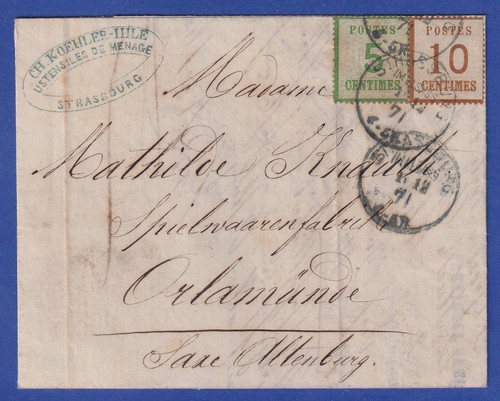 CH. KOEHLER-IHLE
USTENSILES DE MENAGE
STRASBOURG
POSTES
5
CENTIMES
POSTES
10
CENTIMES
71
Madame
Mathilde Knauth
Spielwaarenfabrik
Orlamünde
Saxe Altenburg.
12
71